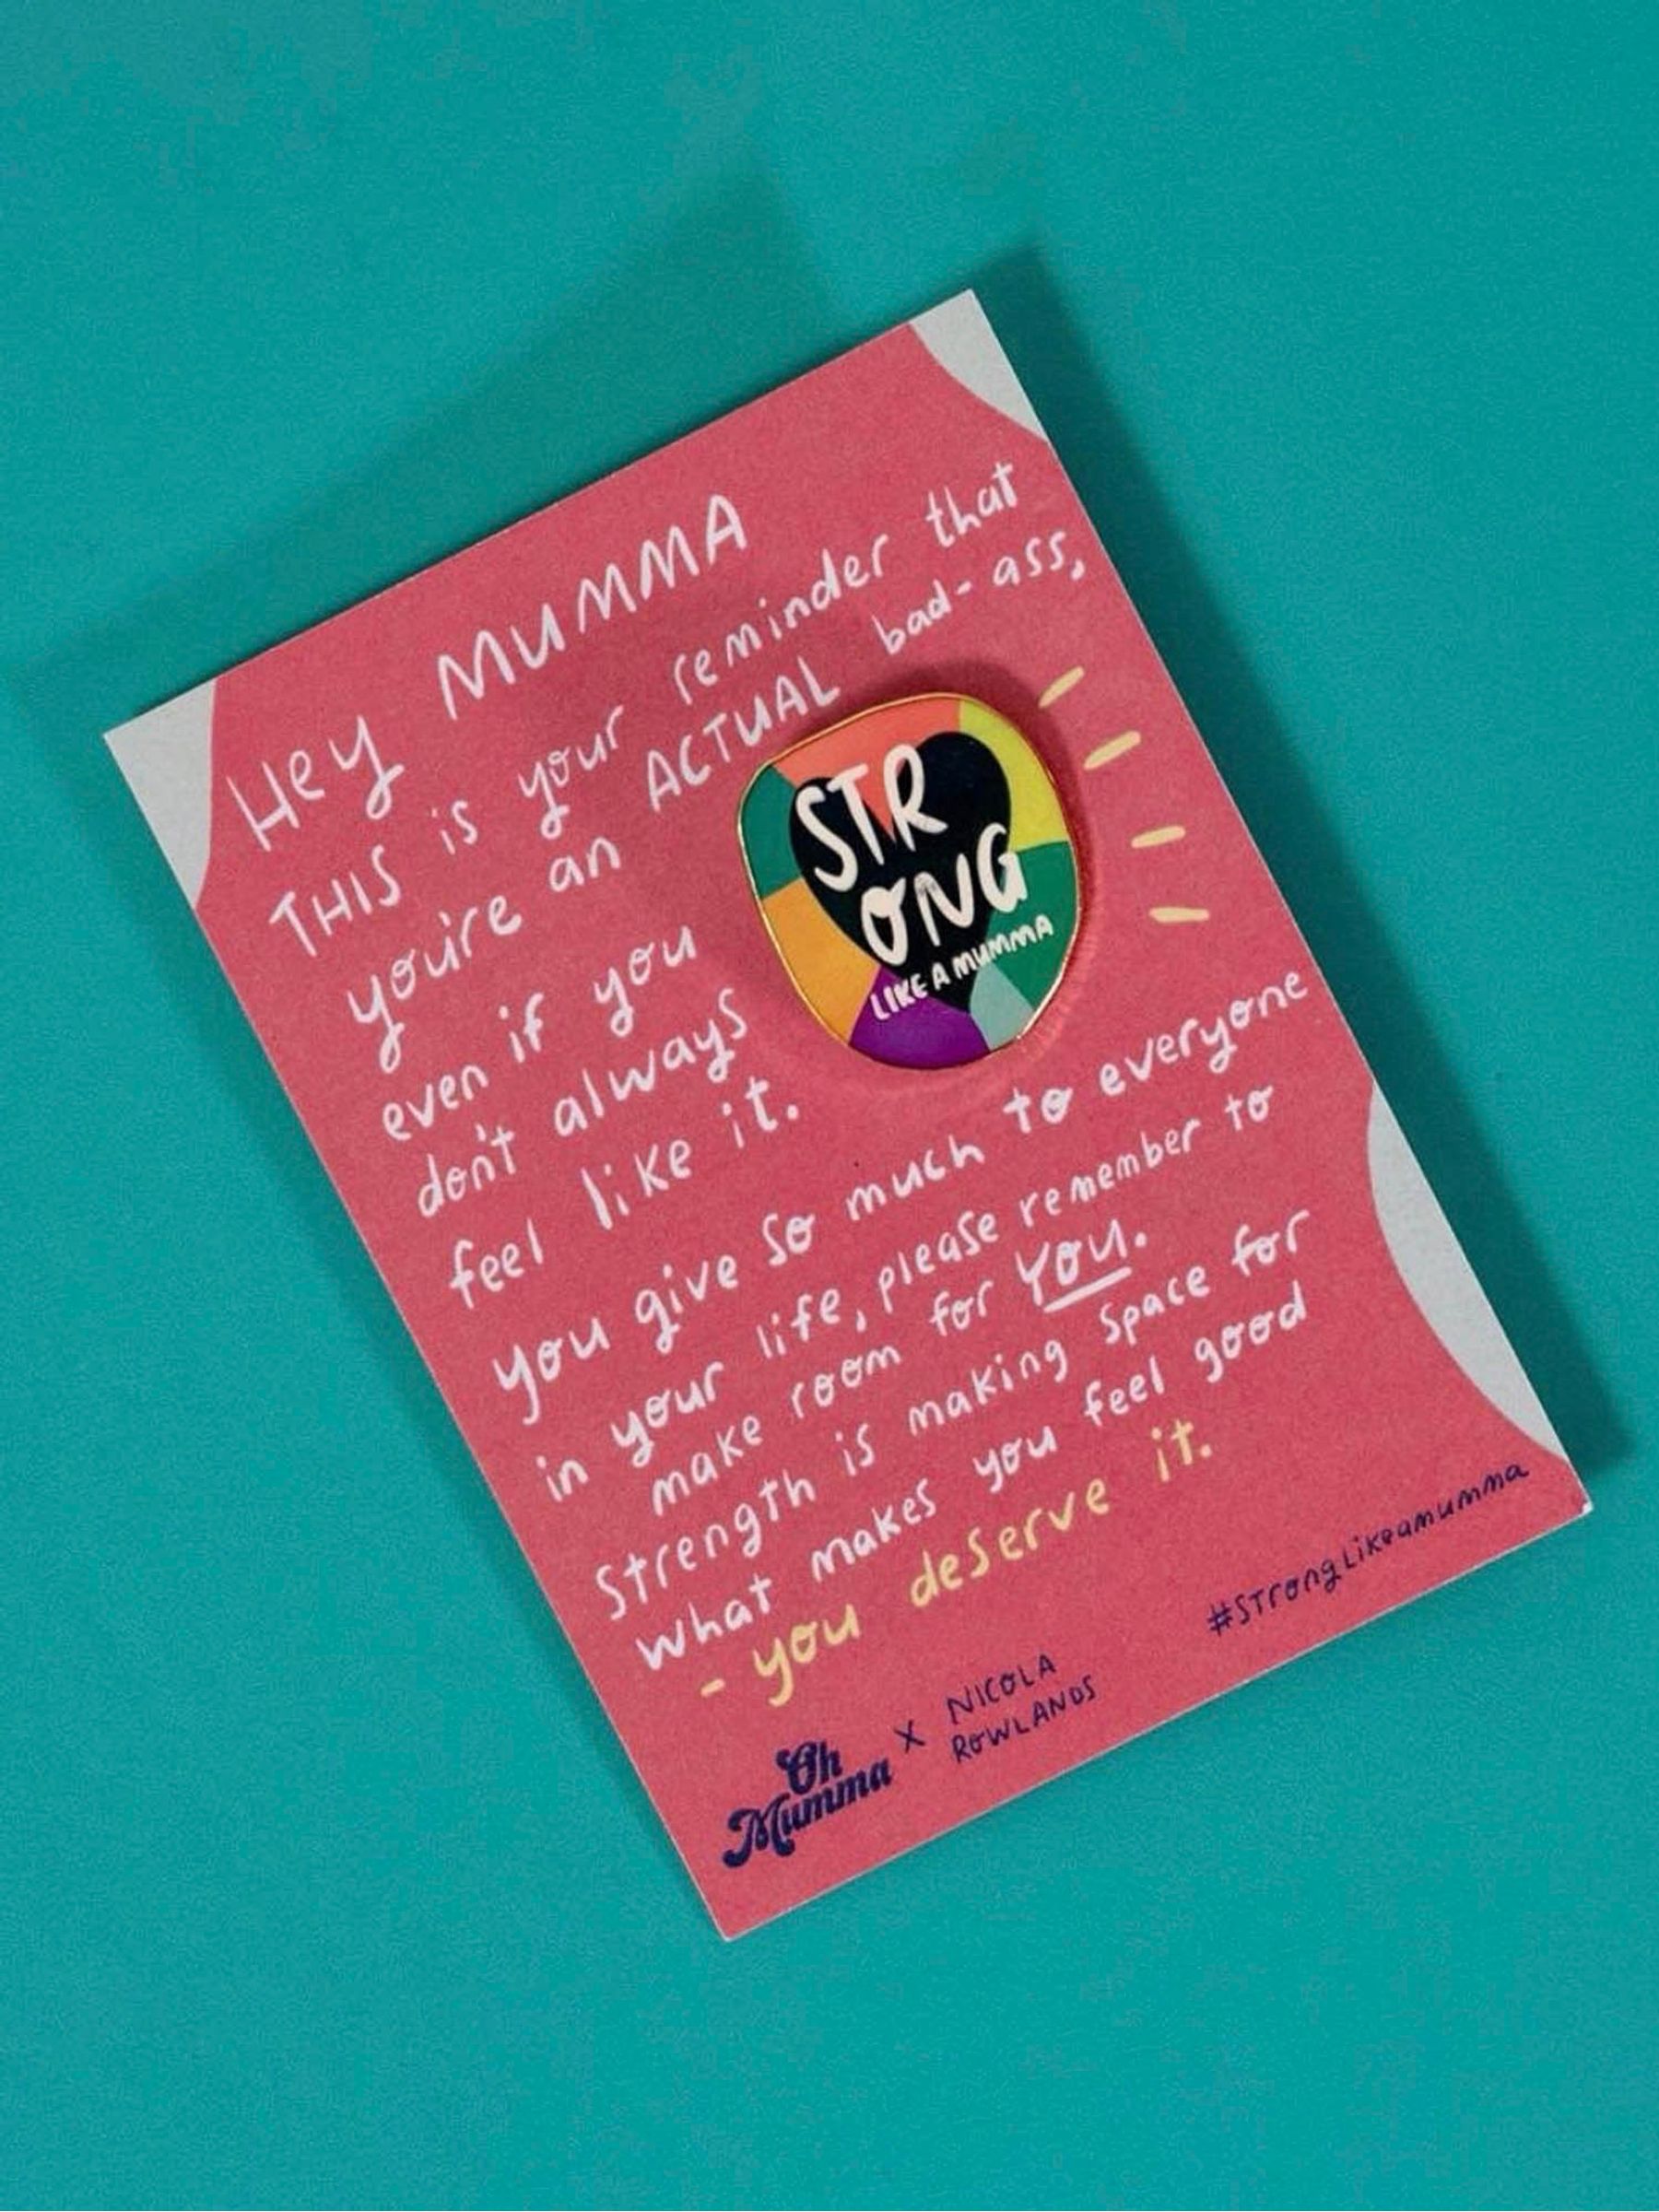 Hey MUMMA
THIS is your reminder that
you're an ACTUAL bad-ass,
even if you
don't always
feel like it.
STR
ONG
LIKE A MUMMA
you give so much to everyone
in your life, please remember to
make room for YOU.
Strength is making space for
what makes you feel good
- you deserve it.
#STrongLikeamumma
Oh
Mumma
X
NICOLA
ROWLANDS